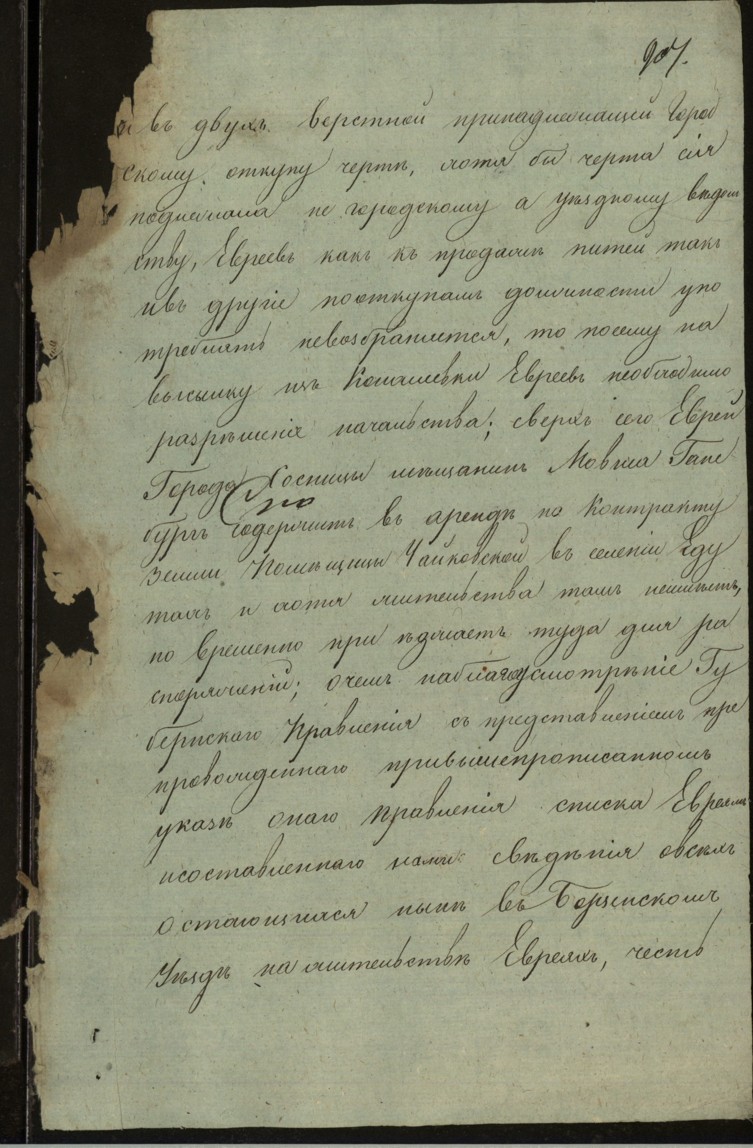 907.
и въ двухъ верстной принадлежащей Город
скому откупу черты, хотя бы черта сія
подлежала не городскому а уѣздному вѣдом
ству, Евреевъ какъ къ продажѣ питей такъ
ивъ другіе пооткупамъ должности упо
треблять невозбраняется, то посему на
высылку изъ Кошелевки Евреевъ необходимо
разрѣшенія начальства; сверхъ сего Еврей
Города мѣщанинъ Мовша Ганс
бургъ содержитъ въ арендѣ по Контракту
земли Помѣщицы Чайковской въ селеніи Еду
тахъ и хотя жительства тамъ неимѣетъ,
но временно при ѣзжаетъ туда для ра
споряженій; очемъ наблагоусмотрѣніе Гу
бернскаго Правленія съ представленіемъ пре
провожденнаго привышепрописанномъ
указѣ онаго Правленія списка Евреямъ
исоставленнаго свѣдѣнія овсѣхъ
остающихся нынѣ въ Борзенскомъ
Уѣздѣ на жительствѣ Евреяхъ, честь